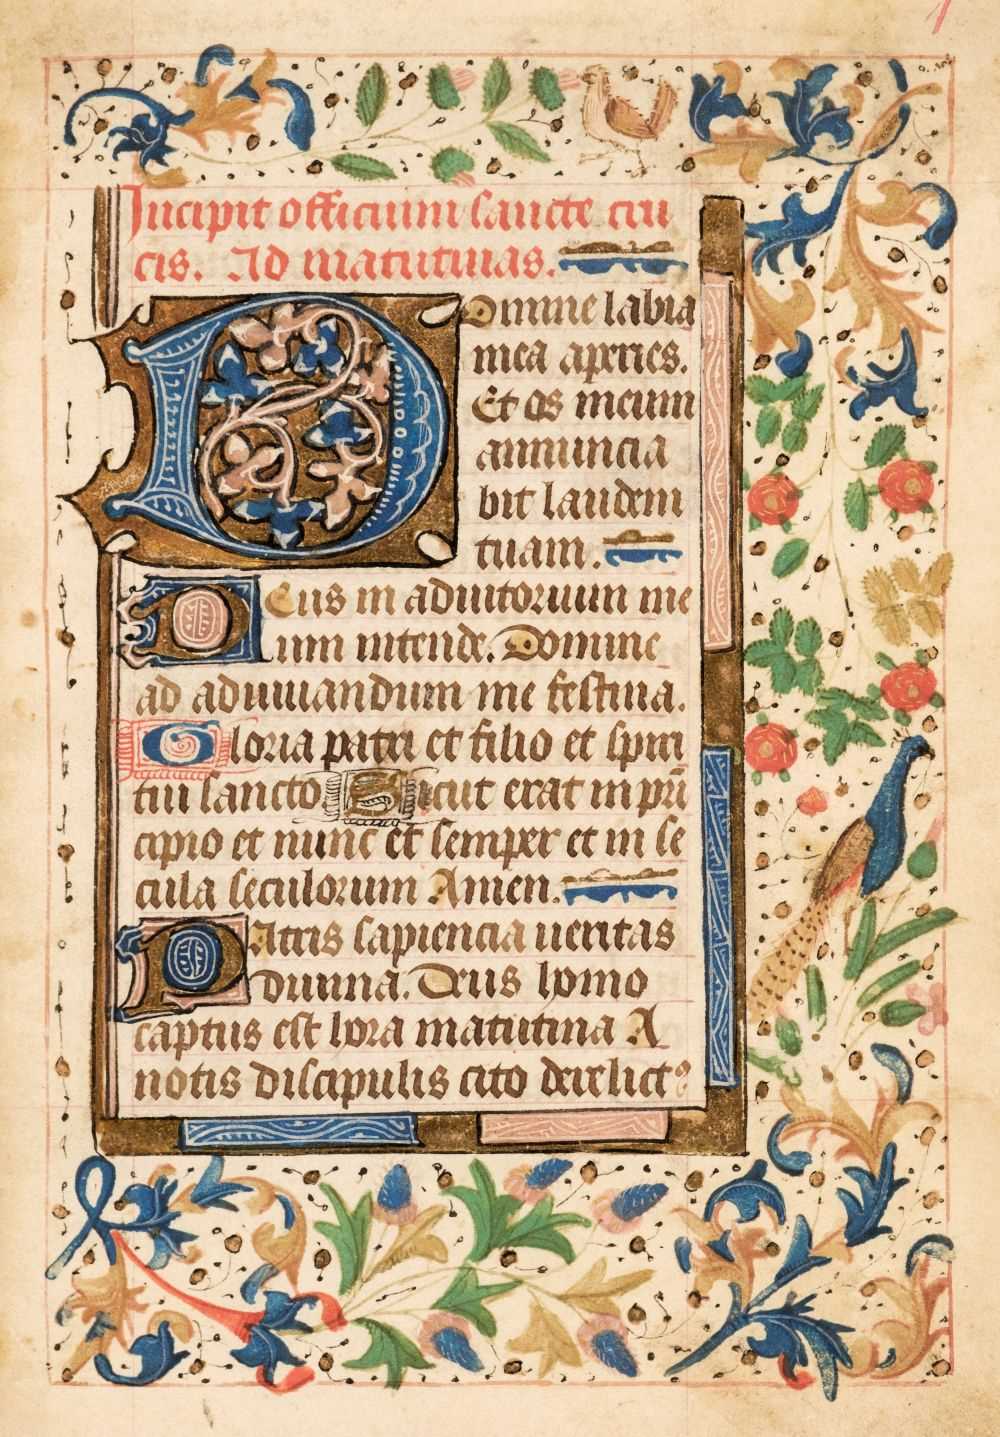 1
Incipit officium sancte cru
cis. Ad matutinas.
Domine labia
mea aperies.
Et os meum
annuncia
bit laudem
tuam.
Deus in adiutorium me
um intende. Domine
ad adiuuandum me festina.
Gloria patri et filio et spiri
tui sancto Sicut erat in prin̄
cipio et nunc et semper et in se
cula seculorum Amen.
PAtris sapiencia ueritas
diuina. Deus homo
captus est hora matutina A
notis discipulis cito derelictꝰ